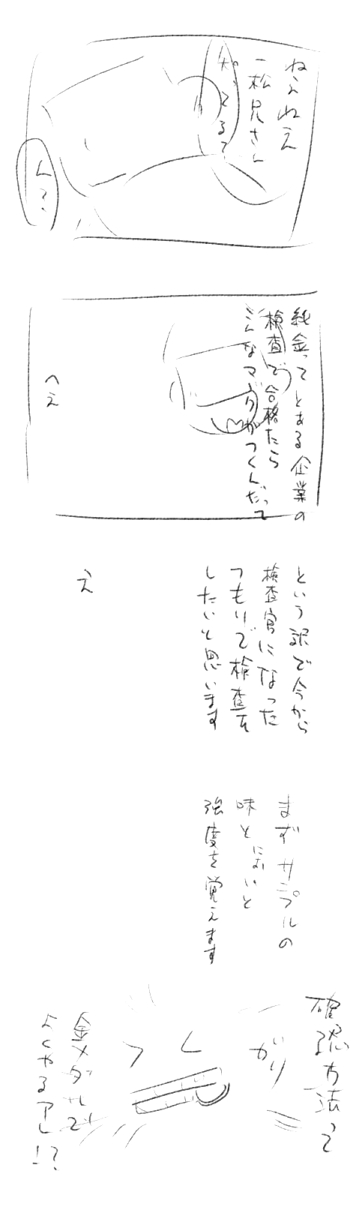 ねえねえ
一松兄さん
知ってる?
ん?
純金ってとある企業の
検査で合格したら
こんなマークがつくんだって
へぇ
という訳で今から
検査官になった
つもりで検査を
したいと思います
え
まずサンプルの
味とにおいと
強度を覚えます
確認方法って
がり
金メダルで
よくやるアレ!?